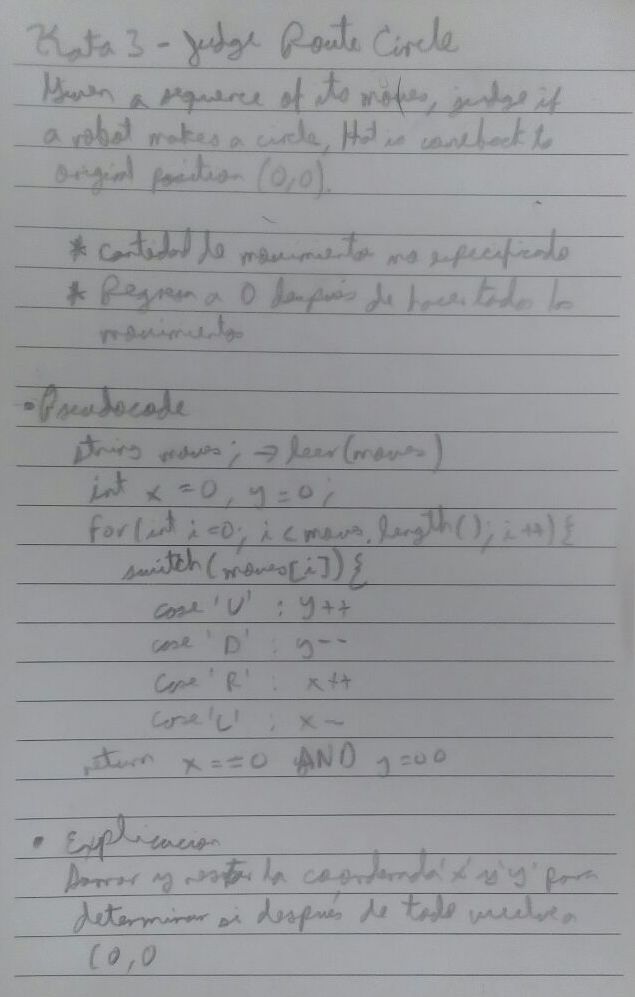 Kata 3 - Judge Route Circle
Given a sequence of its moves, judge if
a robot makes a circle, that is come back to
original position (0,0).
* Cantidad de movimiento no especificado
* Regresa a 0 después de hacer todos los
movimientos
• Pseudocode
string moves; → leer(moves)
int x = 0, y = 0;
for(int i=0; i < moves.length(); i++){
switch(moves[i]){
case 'U' : y++
case 'D' : y--
case 'R' : x++
case 'L' : x--
return x==0 AND y==0
• Explicacion
Sumar y restar la coordenada 'x' y 'y' para
determinar si después de todo vuelve a
(0,0